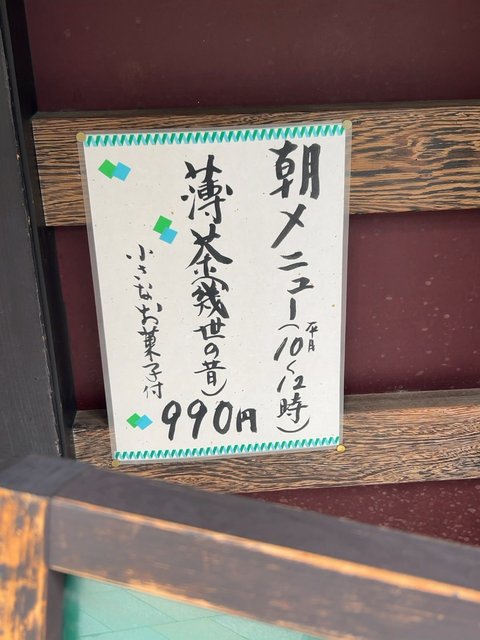 朝メニュー(平日10〜12時)
薄茶(幾世の昔)
990円
小さなお菓子付